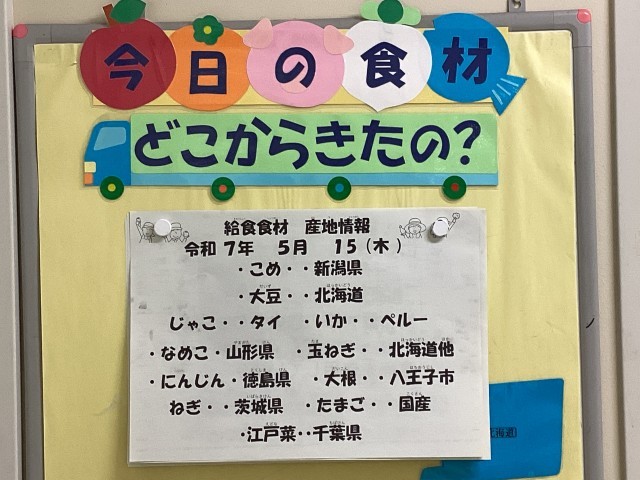 今日の食材
どこからきたの？
給食食材　産地情報
令和 7年　5月　15（木）
・こめ・・新潟県
・大豆・・北海道
じゃこ・・タイ　・いか・・ペルー
・なめこ・山形県　・玉ねぎ・・北海道他
・にんじん・徳島県　・大根・・八王子市
ねぎ・・茨城県　・たまご・・国産
・江戸菜・・千葉県
北海道